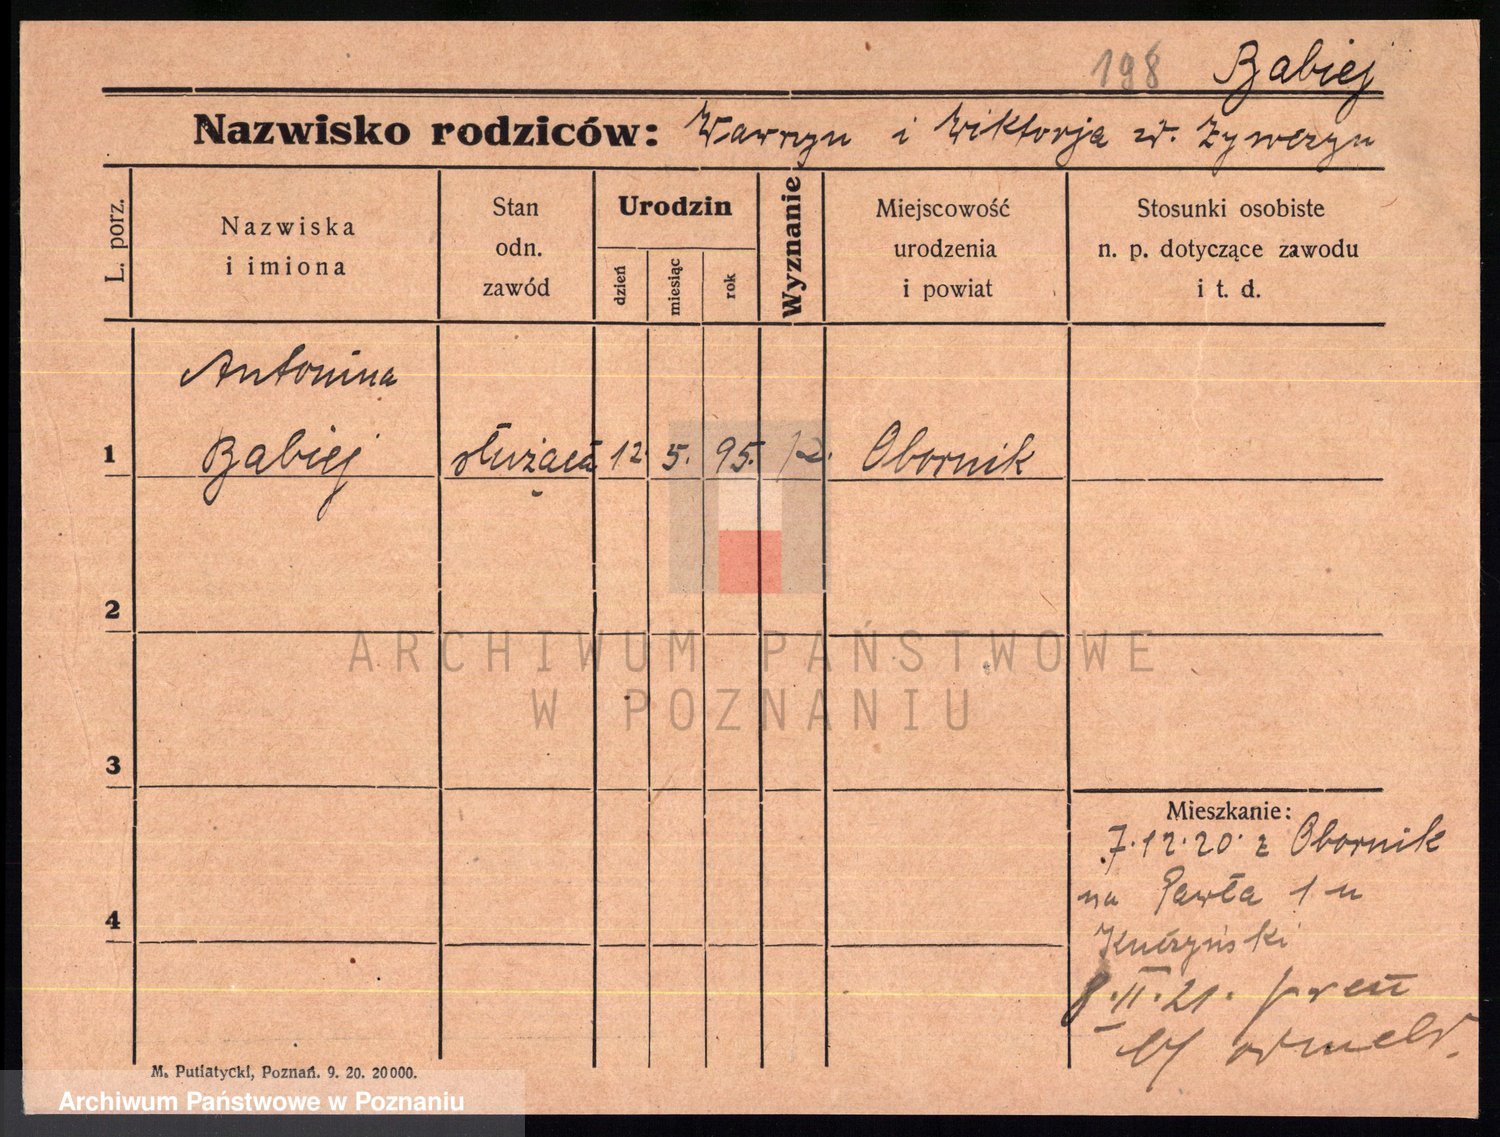 198 Babiej
Nazwisko rodziców: Wawrzyn i Wiktorja
L. porz.
Nazwiska
i imiona
Stan
odn.
zawód
Urodzin
dzień
miesiąc
rok
Wyznanie
Miejscowość
urodzenia
i powiat
Stosunki osobiste
n. p. dotyczące zawodu
i t. d.
Antonina
1 Babiej służąca 12. 5. 95. Obornik
2
3
4
Mieszkanie:
7.12.20. z Obornik
na Pawła 1 u
8.II.21.
odmeld.
M. Putiatycki, Poznań. 9. 20. 20000.
ARCHIWUM PAŃSTWOWE
W POZNANIU
Archiwum Państwowe w Poznaniu